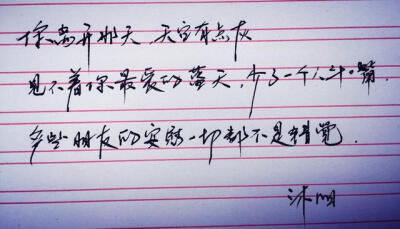 你离开那天,天空有点灰
见不着你最爱的蓝天,少了一个人斗嘴.
多些朋友的安慰一切都不是错觉.